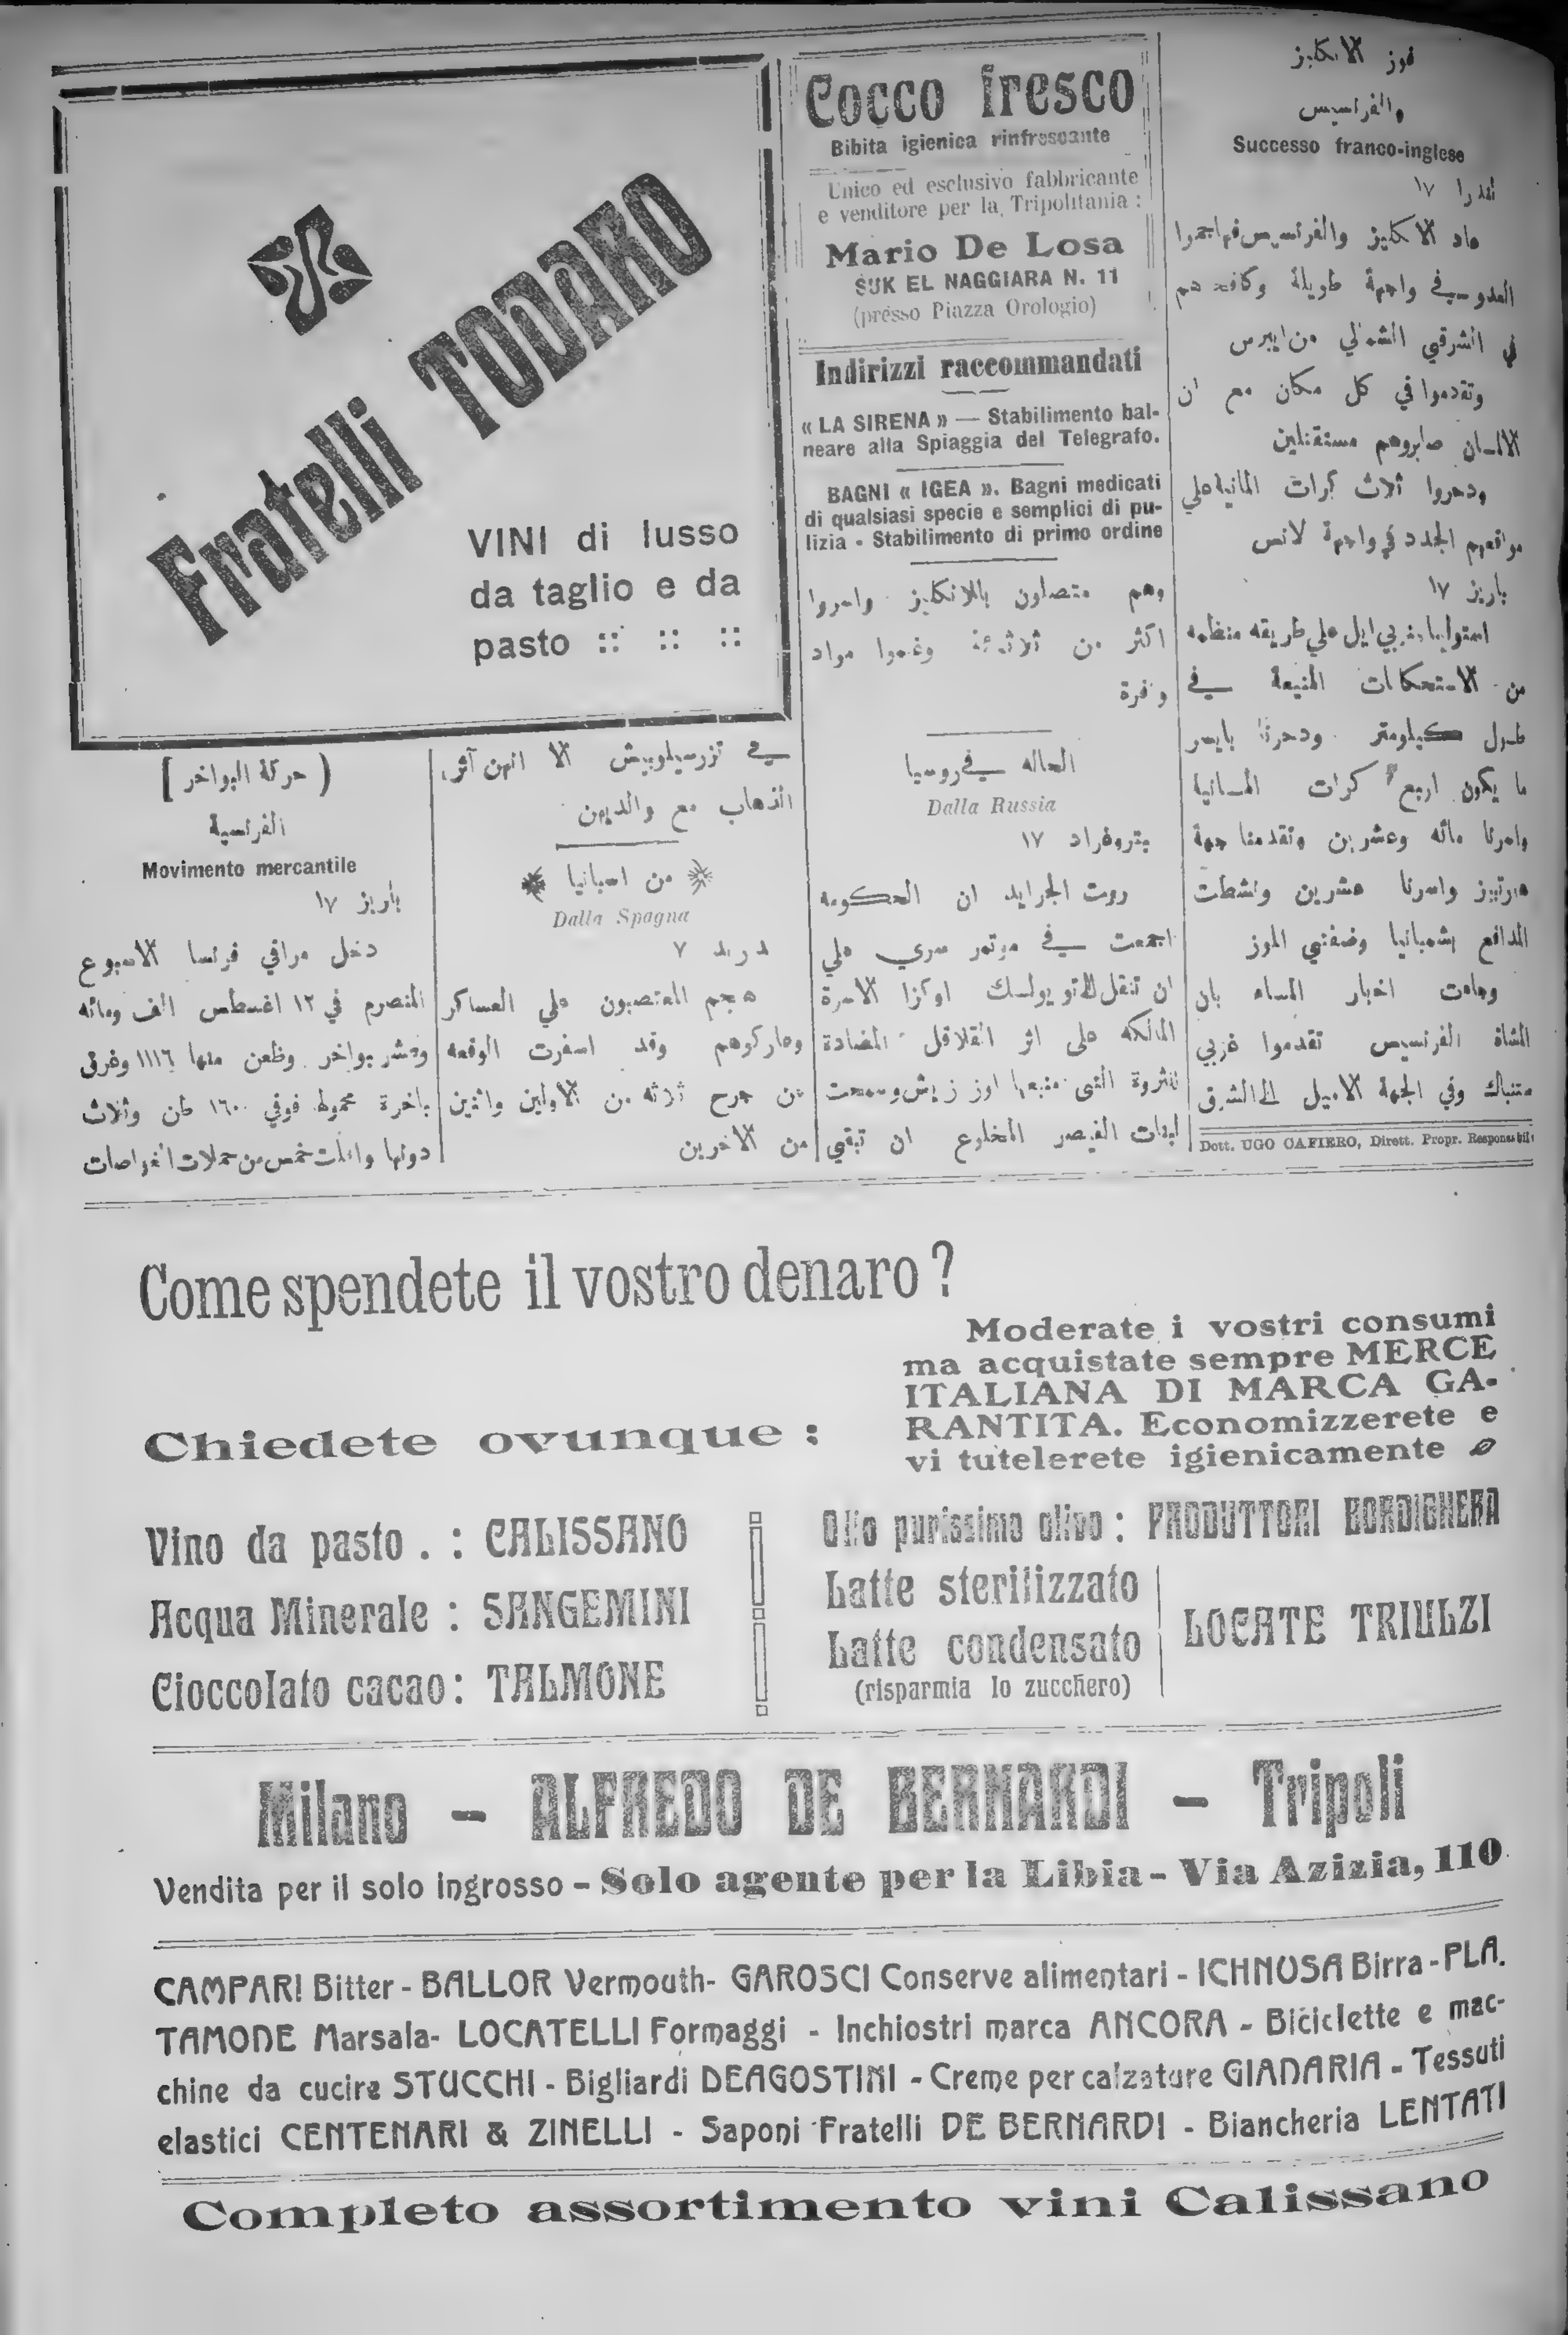 فوز الانكليز
والفرنسيس
Successo franco-inglese
لندرا ١٧
عاد الانكليز والفرنسيس فهاجموا
العدو في واجهة طويلة وكافحهم
في الشرقي الشمالي من ايبرس
وتقدموا في كل مكان مع ان
الالمان صابروهم مستقتلين
ودحروا ثلاث كرات المانية علي
مواقعهم الجدد في واجهة لانس
باريز ١٧
استولينا غربي ايل علي طريقه منظمه
من الاستحكامات المنيعة في
طول كيلومتر ودحرنا بايسر
ما يكون اربع كرات المانيا
واسرنا مائه وعشرين وتقدمنا جهة
واسرنا عشرين ونشطت
المدافع بشمبانيا وضفتي الموز
وجاءت اخبار المساء بان
المشاة الفرنسيس تقدموا غربي
وفي الجهة الي الشرق
Dott. UGO CAFIERO, Dirett. Propr. Responsabile
Cocco fresco
Bibita igienica rinfrescante
Unico ed esclusivo fabbricante
e venditore per la Tripolitania :
Mario De Losa
SUK EL NAGGIARA N. 11
(presso Piazza Orologio)
Indirizzi raccommandati
« LA SIRENA » — Stabilimento bal-
neare alla Spiaggia del Telegrafo.
BAGNI « IGEA ». Bagni medicati
di qualsiasi specie e semplici di pu-
lizia - Stabilimento di primo ordine
وهم متصلون بالانكليز واسروا
اكثر من وغنموا مواد
وفرة
الحاله في روسيا
Dalla Russia
بتروغراد ١٧
روت الجرايد ان الحكومه
اجمعت في موتمر سري علي
ان تنقل اوكزا الاسرة
المالكه على اثر القلاقل المضادة
للثروة التى منبعها وسمحت
القيصر المخلوع ان تبقي
Fratelli TODARO
VINI di lusso
da taglio e da
pasto :: :: ::
في الا انهن آثرن
الذهاب مع والديهن
من اسبانيا
Dalla Spagna
مدريد ٧
هجم المعتصبون علي العساكر
وعاركوهم وقد اسفرت الوقعه
عن جرح ثلاثه من الاولين واثنين
من الاخرين
( حركة البواخر ]
الفرنسية
Movimento mercantile
باريز ١٧
دخل مراقي فرنسا الاسبوع
المنصرم في ١٢ اغسطس الف ومائه
وعشر بواخر وظعن منها ١١١٦ وغرق
باخرة محمولها فوفي ١٦٠٠ طن وثلاث
دونها وافلت خمس من حملات الغواصات
Come spendete il vostro denaro ?
Moderate i vostri consumi
ma acquistate sempre MERCE
ITALIANA DI MARCA GA-
RANTITA. Economizzerete e
vi tutelerete igienicamente
Chiedete ovunque :
Vino da pasto . : CALISSANO
Acqua Minerale : SANGEMINI
Cioccolato cacao : TALMONE
Olio purissimo olivo : PRODUTTORI BORDIGHERA
Latte sterilizzato
Latte condensato
(risparmia lo zucchero)
LOCATE TRIULZI
Milano - ALFREDO DE BERNARDI - Tripoli
Vendita per il solo ingrosso - Solo agente per la Libia - Via Azizia, 110
CAMPARI Bitter - BALLOR Vermouth - GAROSCI Conserve alimentari - ICHNUSA Birra - PLA.
TAMONE Marsala - LOCATELLI Formaggi - Inchiostri marca ANCORA - Biciclette e mac-
chine da cucire STUCCHI - Bigliardi DEAGOSTINI - Creme per calzature GIADARIA - Tessuti
elastici CENTENARI & ZINELLI - Saponi Fratelli DE BERNARDI - Biancheria LENTATI
Completo assortimento vini Calissano